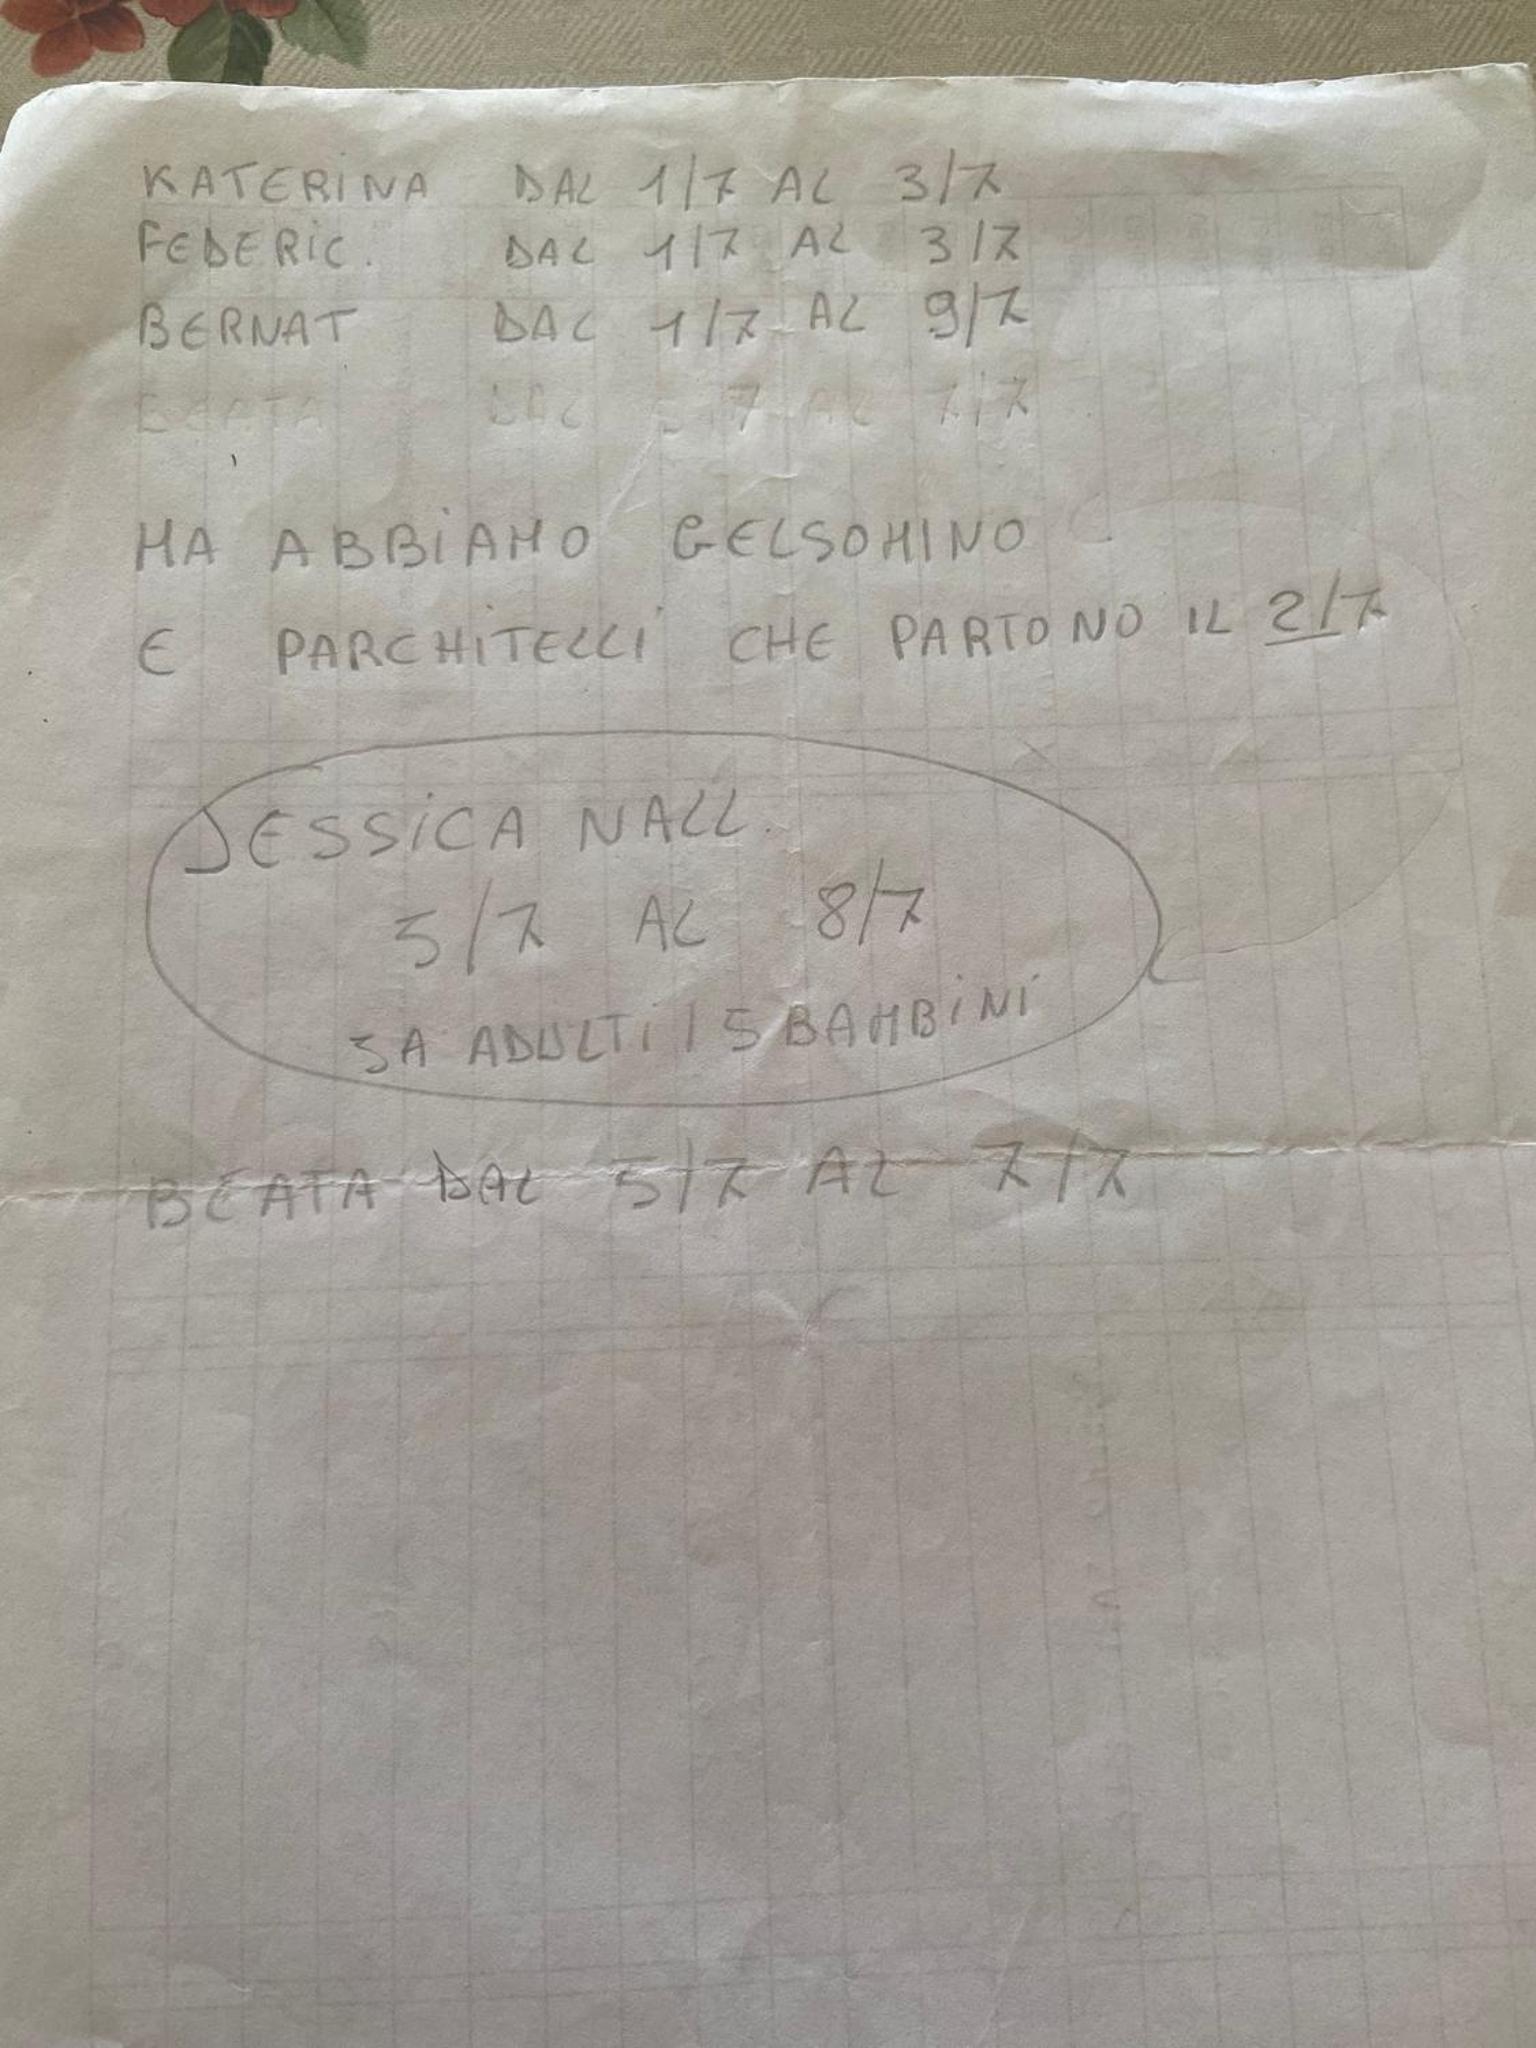 KATERINA DAL 1/7 AL 3/7
FEDERIC. DAL 1/7 AL 3/7
BERNAT DAL 1/7 AL 9/7
BEATA DAL 5/7 AL 7/7
MA ABBIAMO GELSOMINO
E PARCHITELLI CHE PARTONO IL 2/7
JESSICA NALL.
5/7 AL 8/7
5A ADULTI / 5 BAMBINI
BEATA DAL 5/7 AL 7/7